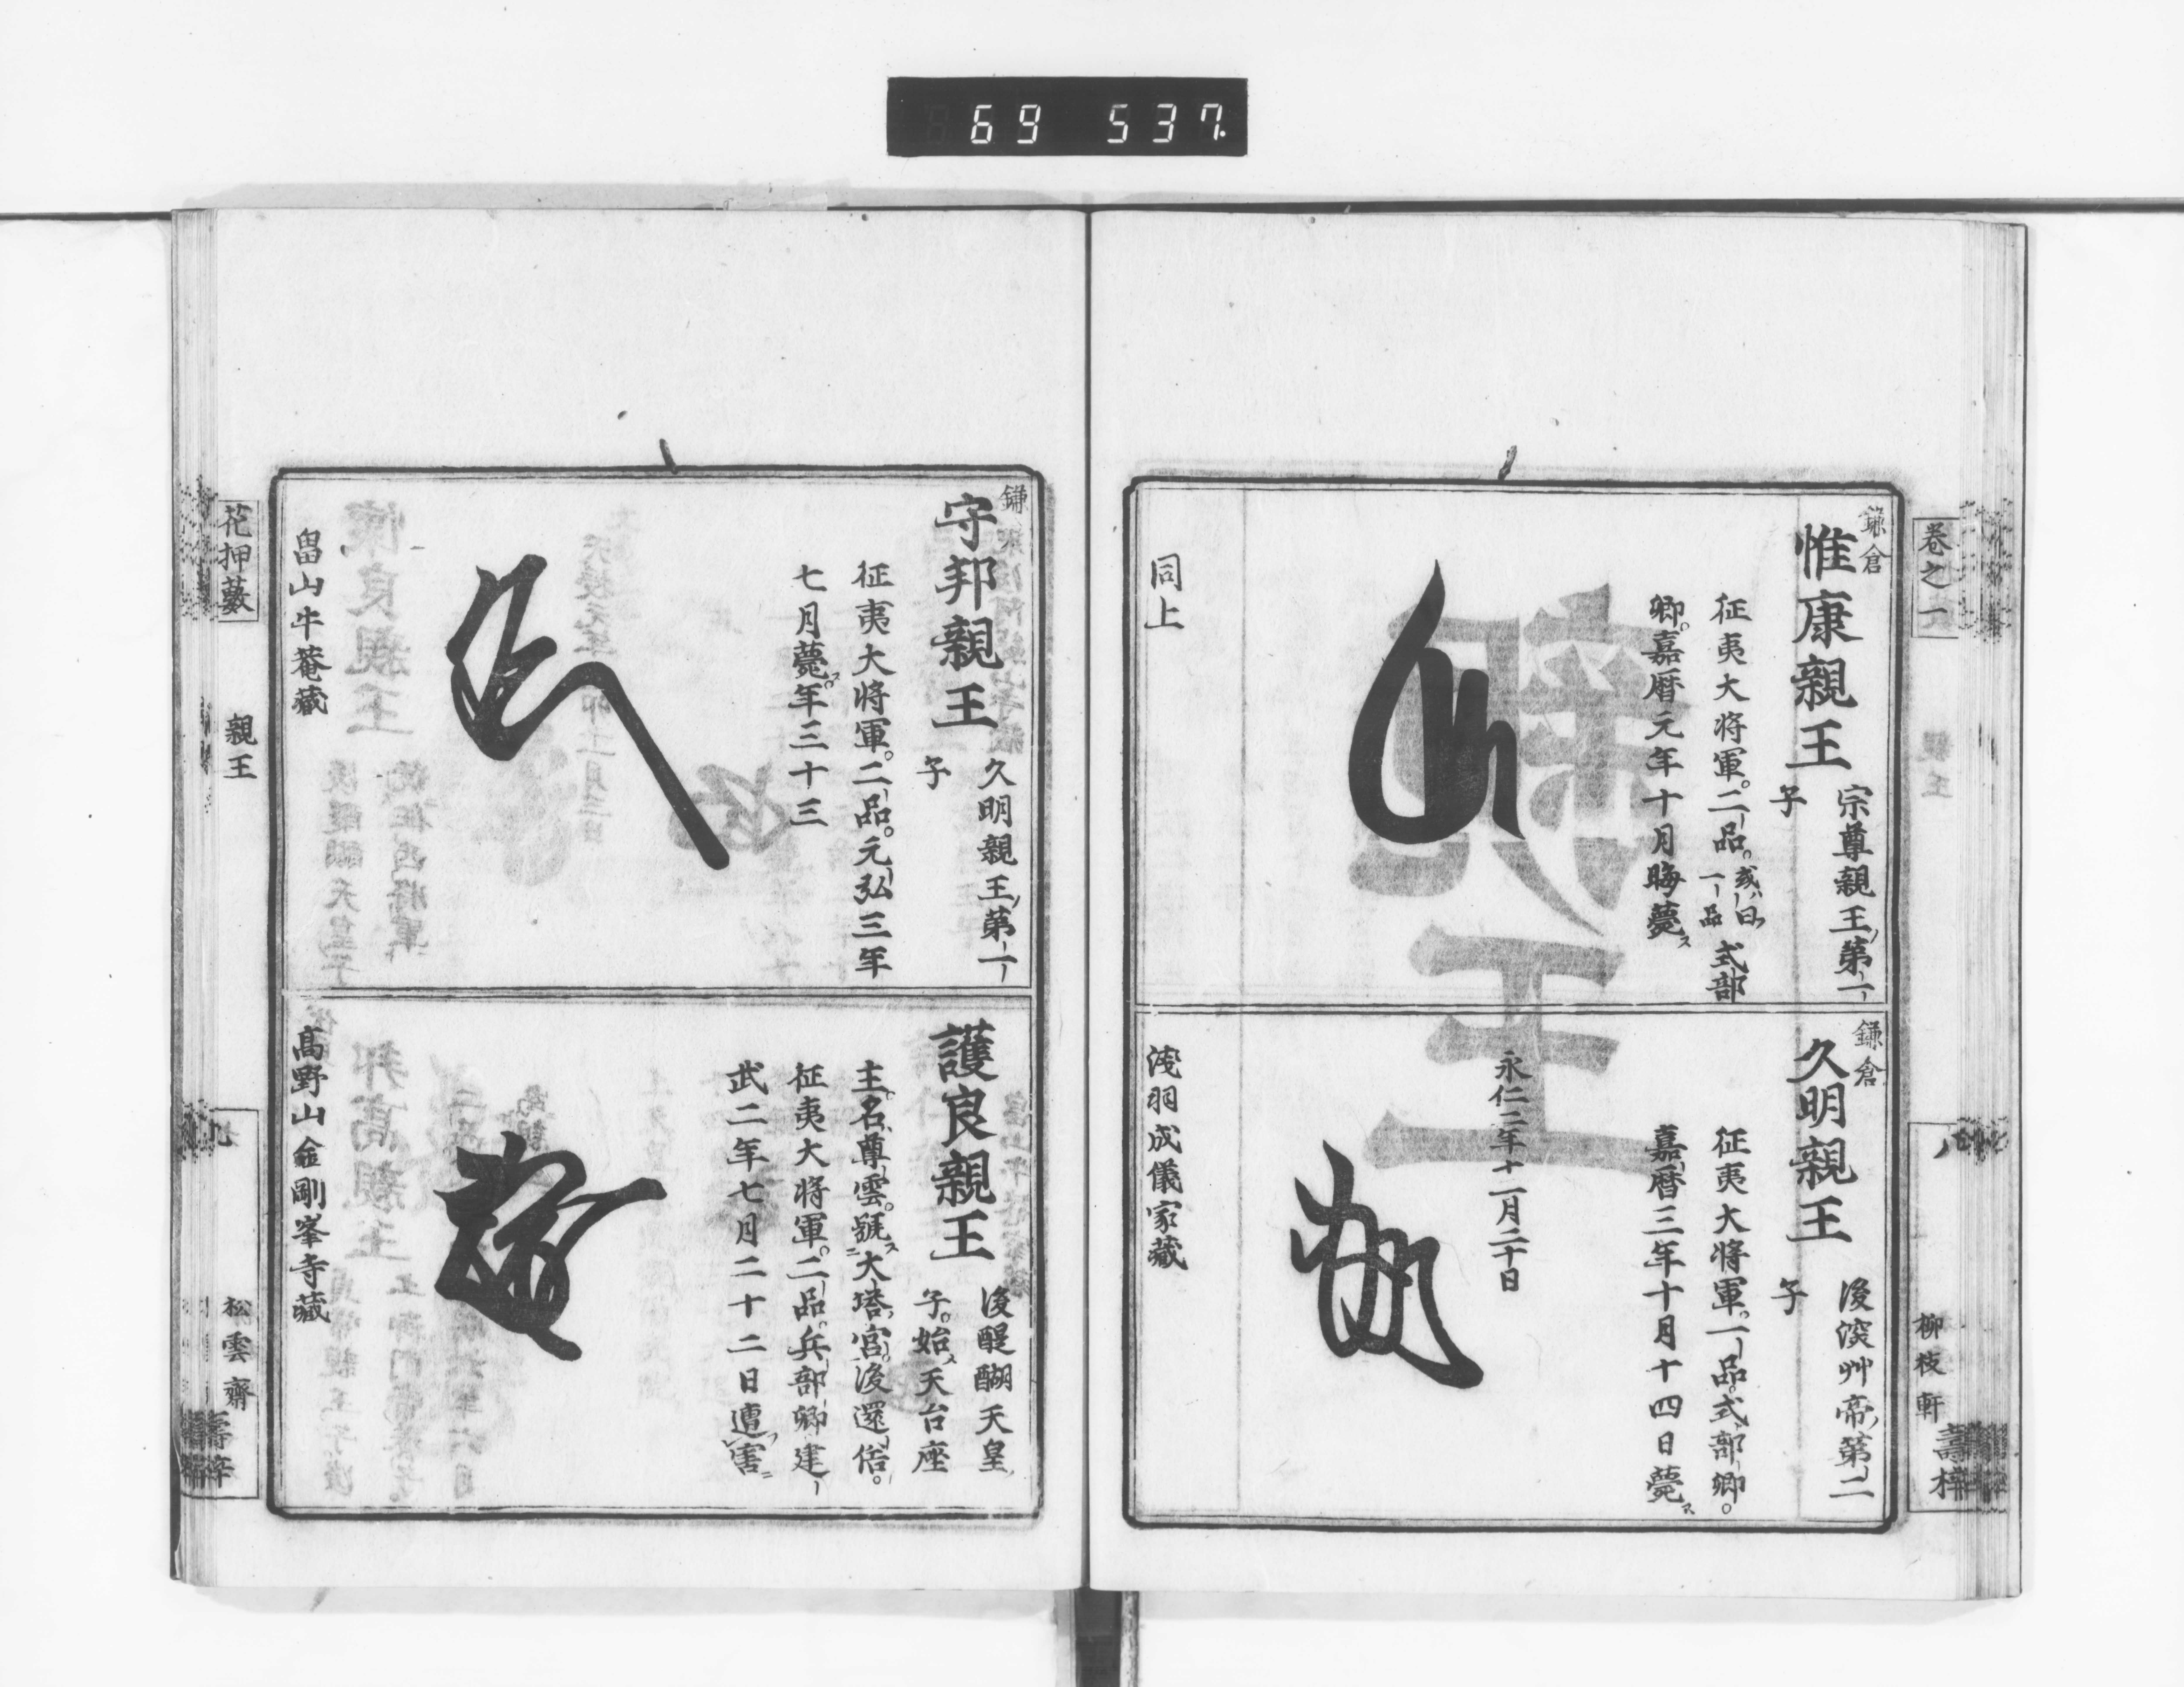 69 537
卷之一
柳枝軒
鎌倉
惟康親王
宗尊親王ノ第一ノ
子
征夷大将軍。二品。或ハ曰一品式部
卿。嘉暦元年十月晦薨ス
同上
鎌倉
久明親王
後深艸帝ノ第二
子
征夷大将軍。一品。式部卿。
嘉暦三年十月十四日薨ス
永仁二年十一月二十日
浅羽成儀家藏
鎌倉
守邦親王
久明親王ノ第一ノ
子
征夷大将軍。二品。元弘三年
七月薨ス。年三十三
畠山牛菴藏
護良親王
後醍醐天皇ノ
子。始メ天台座
主。名ハ尊雲。號ス大塔ノ宮ニ。後還俗。
征夷大将軍。二品。兵部卿。建
武二年七月二十二日遭フ害ニ
髙野山金剛峯寺藏
花押藪
親王
七
松雲齋